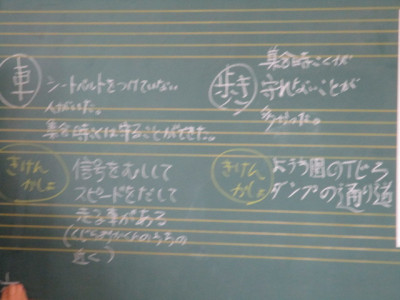 車
シートベルトをつけていない
人がいた。
集合時こくは守ることができた。
歩き
集合時こくが
守れないことが
多かった。
きけん
かしょ
信号をむしして
スピードをだして
走る車がある
のうちの
近く)
きけん
かしょ
ようち園のT
ダンプの通り道